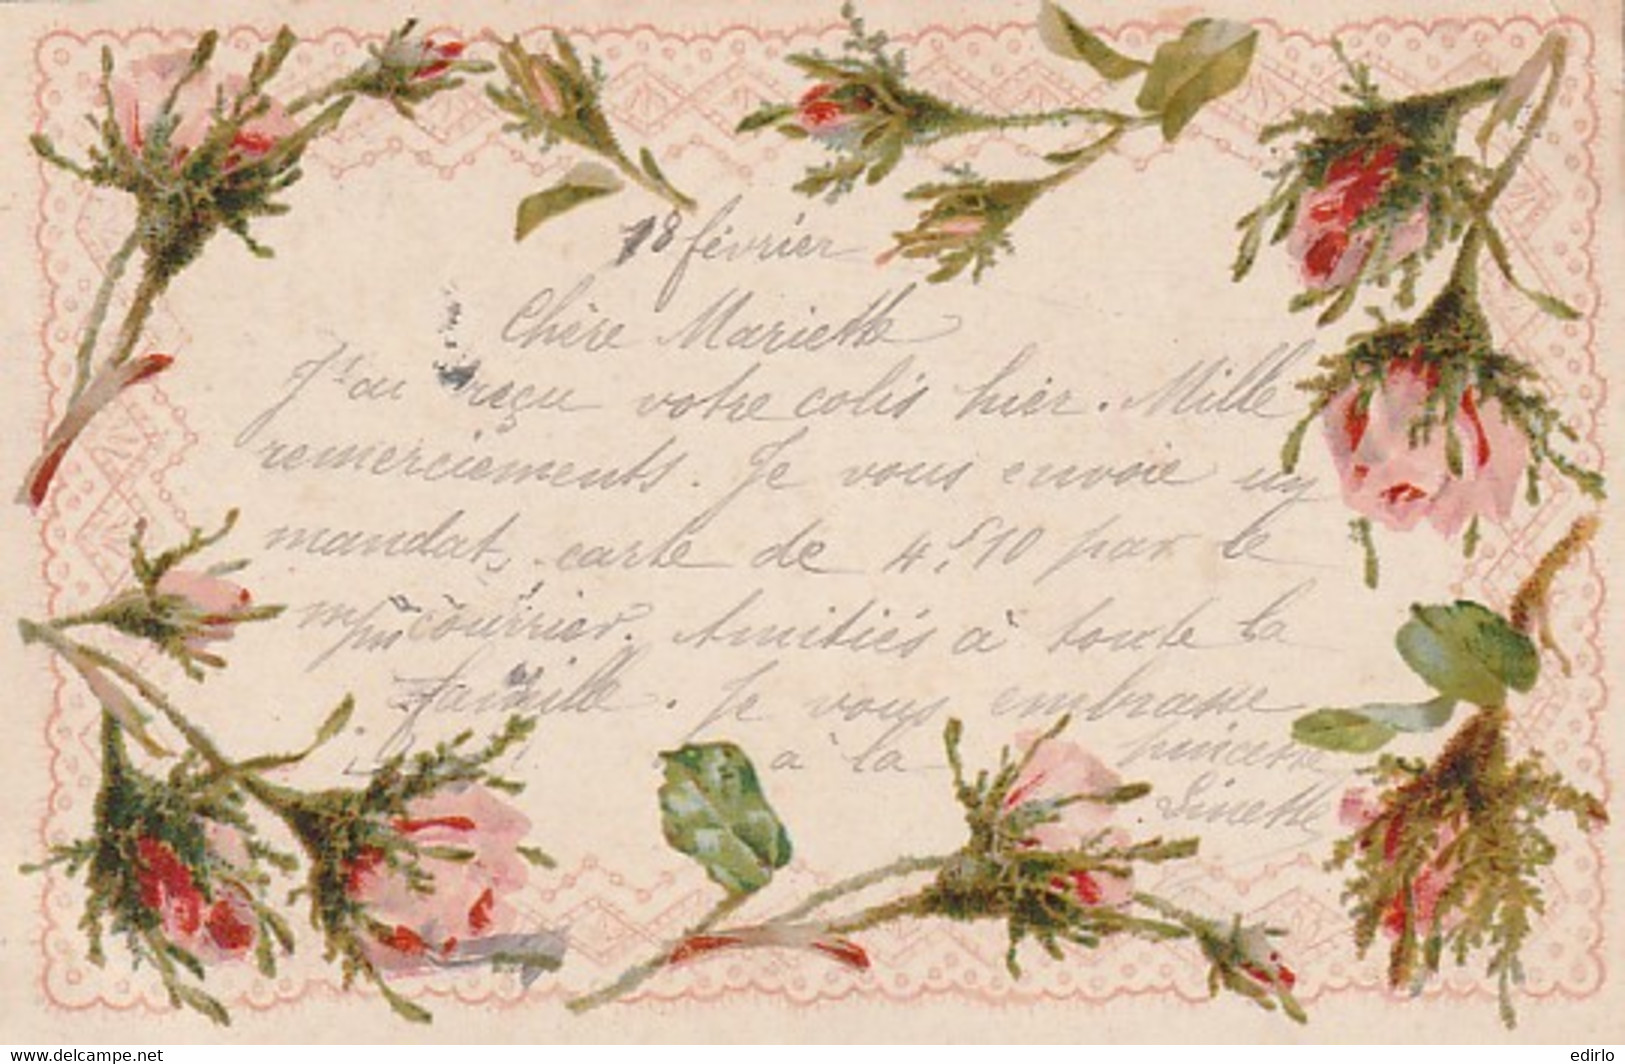 18 février
Chère Mariette
J'ai reçu votre colis hier. Mille
remerciements. Je vous envoie un
mandat carte de 4,f10 par le
courrier. Amitiés à toute la
famille. Je vous embrasse
à la
Finette
www.delcampe.net
edirlo